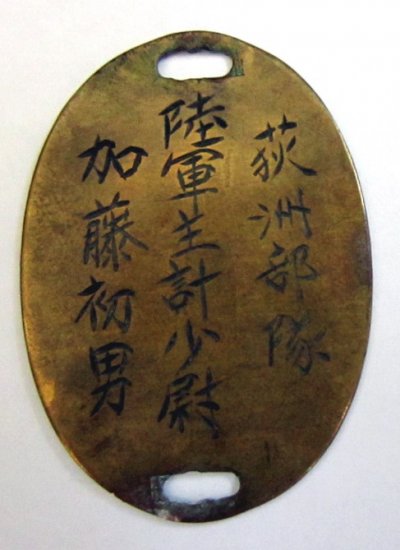 荻洲部隊
陸軍主計少尉
加藤初男